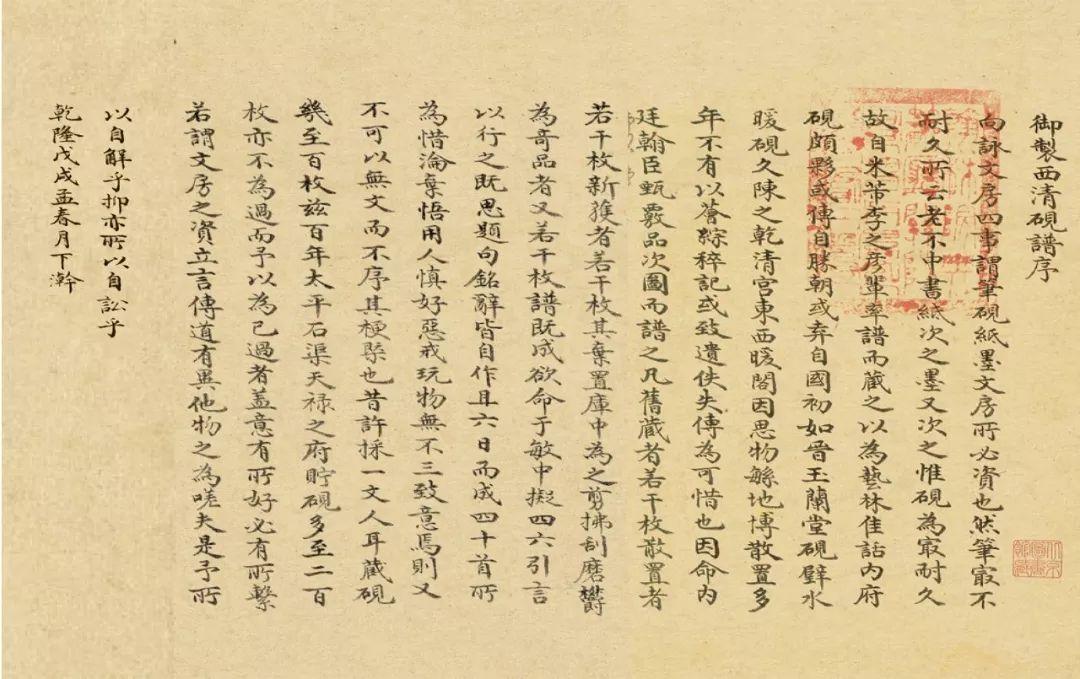 御製西清硯譜序
向詠文房四事謂筆硯紙墨文房所必資也然筆㝡不
耐久所云老不中書紙次之墨又次之惟硯為㝡耐久
故自米芾李之彥輩率譜而藏之以為藝林佳話內府
硯頗夥或傳自勝朝或弃自國初如晉玉蘭堂硯璧水
暖硯久陳之乾清宮東西暖閣因思物緐地博散置多
年不有以薈綜稡記或致遺佚失傳為可惜也因命內
廷翰臣甄覈品次圖而譜之凡舊藏者若干枚散置者
若干枚新獲者若干枚其棄置庫中為之剪拂刮磨欝
為奇品者又若干枚譜既成欲命于敏中擬四六引言
以行之既思題句銘辭皆自作且六日而成四十首所
為惜淪棄悟用人慎好惡戒玩物無不三致意焉則又
不可以無文而不序其梗槩也昔許採一文人耳藏硯
幾至百枚茲百年太平石渠天祿之府貯硯多至二百
枚亦不為過而予以為已過者盖意有所好必有所繫
若謂文房之資立言傳道有異他物之為嗟夫是予所
以自解乎抑亦所以自訟乎
乾隆戊戌孟春月下澣